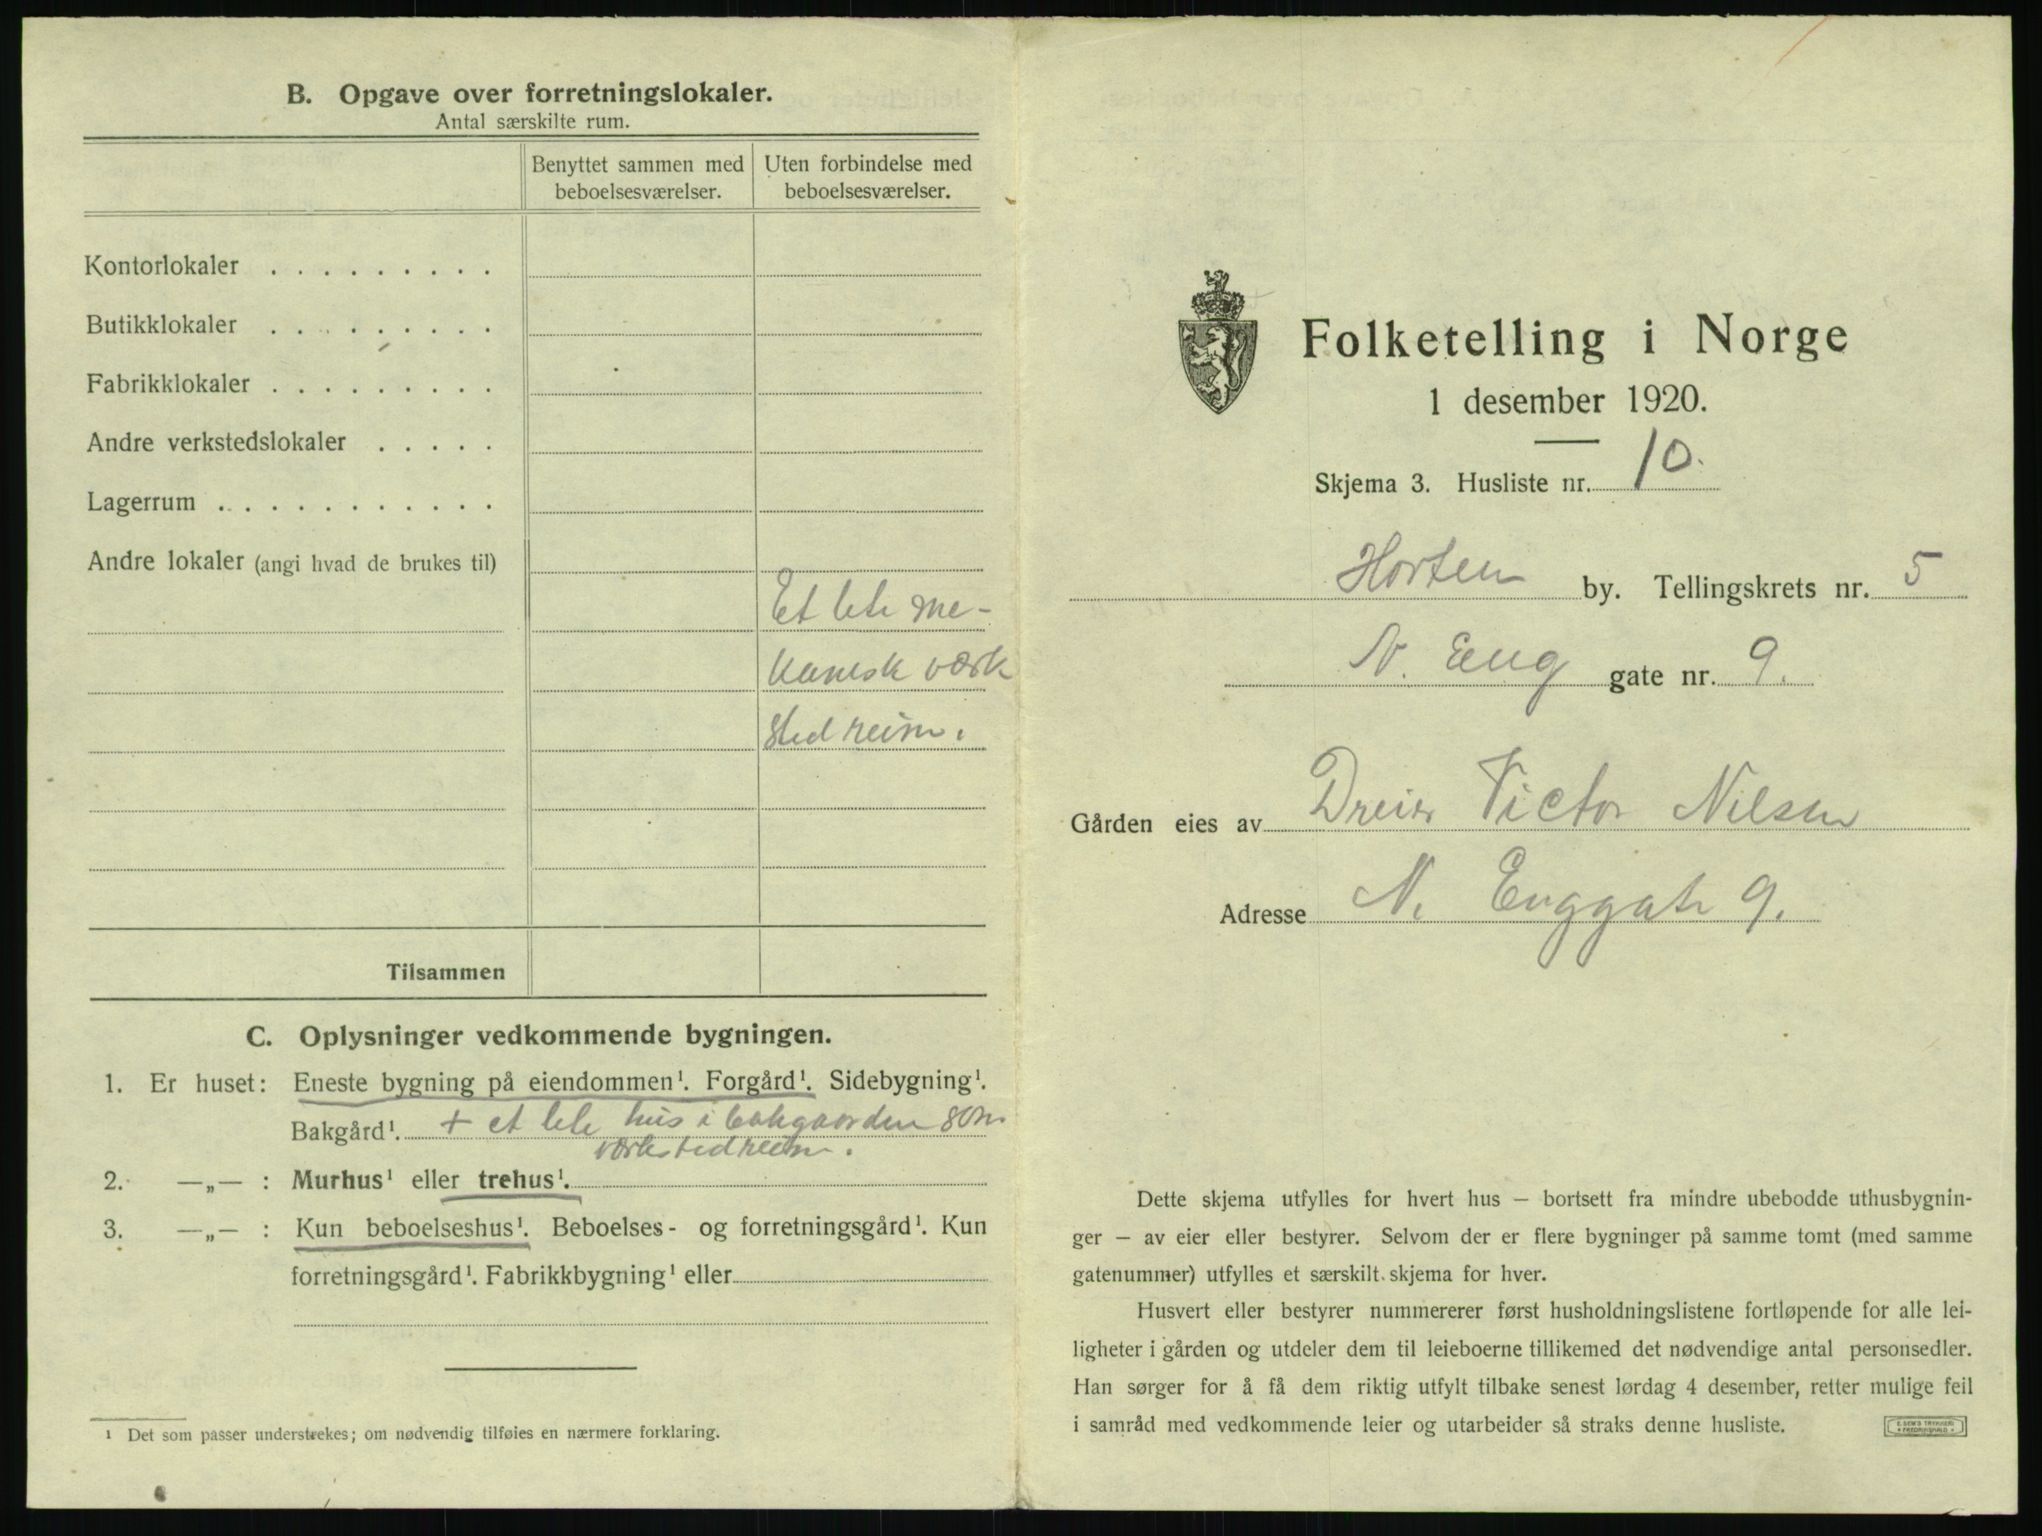 B. Opgave over forretningslokaler.
Antal særskilte rum.
Benyttet sammen med beboelsesværelser.
Uten forbindelse med beboelsesværelser.
Kontorlokaler . . . . . . . . .
Butikklokaler . . . . . . . . .
Fabrikklokaler . . . . . . . . .
Andre verkstedslokaler . . . . .
Lagerrum . . . . . . . . . . .
Andre lokaler (angi hvad de brukes til)
Et lete me-
kanisk værk
sted reism.
Tilsammen
C. Oplysninger vedkommende bygningen.
1. Er huset: Eneste bygning på eiendommen¹. Forgård¹. Sidebygning¹.
Bakgård¹. + et lete hus i bakgaarden som
værksted reism.
2. —„— : Murhus¹ eller trehus¹.
3. —„— : Kun beboelseshus¹. Beboelses- og forretningsgård¹. Kun
forretningsgård¹. Fabrikkbygning¹ eller
¹ Det som passer understrekes; om nødvendig tilføies en nærmere forklaring.
Folketelling i Norge
1 desember 1920.
Skjema 3. Husliste nr. 10.
Horten by. Tellingskrets nr. 5
N. Eng gate nr. 9.
Gården eies av Dreier Victor Nilsen
Adresse N. Enggate 9.
Dette skjema utfylles for hvert hus — bortsett fra mindre ubebodde uthusbygnin-
ger — av eier eller bestyrer. Selvom der er flere bygninger på samme tomt (med samme
gatenummer) utfylles et særskilt skjema for hver.
Husvert eller bestyrer nummererer først husholdningslistene fortløpende for alle lei-
ligheter i gården og utdeler dem til leieboerne tillikemed det nødvendige antal personsedler.
Han sørger for å få dem riktig utfylt tilbake senest lørdag 4 desember, retter mulige feil
i samråd med vedkommende leier og utarbeider så straks denne husliste.
E. SEM'S TRYKKERI
FREDRIKSHALD